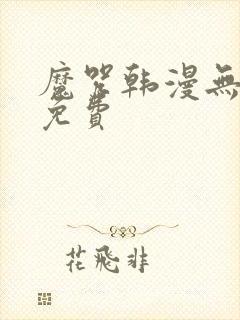 魔咒韩漫無
免費
花飛非